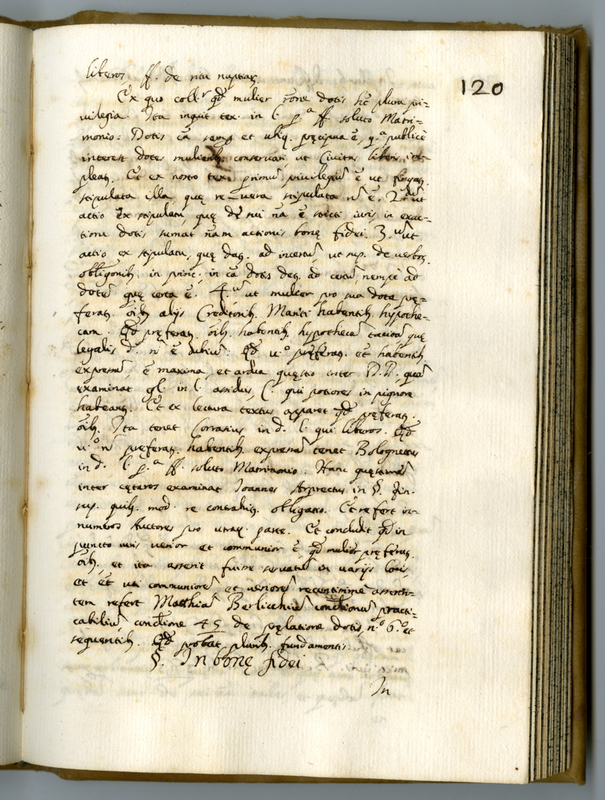 120
liberos ff. de ritu nuptiar.
Ex quo coll.r qd mulier rone dotis hēt plura pri-
uilegia. Ita inquit tex. in l. p.a ff. soluto Matri-
monio: Dotis ca semp et ubiq. precipua ē, q.a publicè
interest dotes mulierib. conseruari ut Ciuitas liberis
pleat. Et ex nostro textu primum priuilegium ē ut
stipulata illa que re uera stipulata n ē. 2.um ut
actio ex stipulatu, que de sui na ē stricti iuris in exac-
tione dotis sumat nam actionis bone fidei. 3.um ut
actio ex stipulatu, que dat. ad incertum, ut sup. de verbor.
obligonib. in princ. in ca dotis det. ad certum nempe ad
dotem que certa ē. 4.um ut mulier pro sua dote pre-
ferat. oib. alijs Creditorib. Mariti habentib. hypothe-
cam. Qd preferat. oib. habentib. hypothecam tacitam que
legalis d. n ē dubium. Qd u.o preferat. et habentib.
expressam ē maxima et ardua questio inter D.D. quam
examinat gl. in l. assiduis C. qui potiores in pignore
habeant. Et ex lectura textus apparet qd preferat.
oib. Ita tenet Corrasius in d. l. qui liberos. Qd
u.o n preferat. habentib. expressam tenet Bolognettus
in d. l. p.a ff. soluto Matrimonio. Hanc questionem
inter ceteros examinat Joannes Arprectus in §. fin.
sup. quib. mod. re contrahit. obligatio. Et refert in-
numeros Auctores pro utraq. parte. Et concludit qd in
puncto iuris uerior et communior ē qd mulier preferat.
oib. et ita asserit fuisse seruatum in uarijs locis
et ut communiorem et ueriorem recentissime asseren-
tem refert Matthiam Berlichium conclusionum practi-
cabilium conclusione 45 de prelatione dotis n.o 6.o et
sequentib. Qd probat plurib. fundamentis.
§. In bone fidei
In